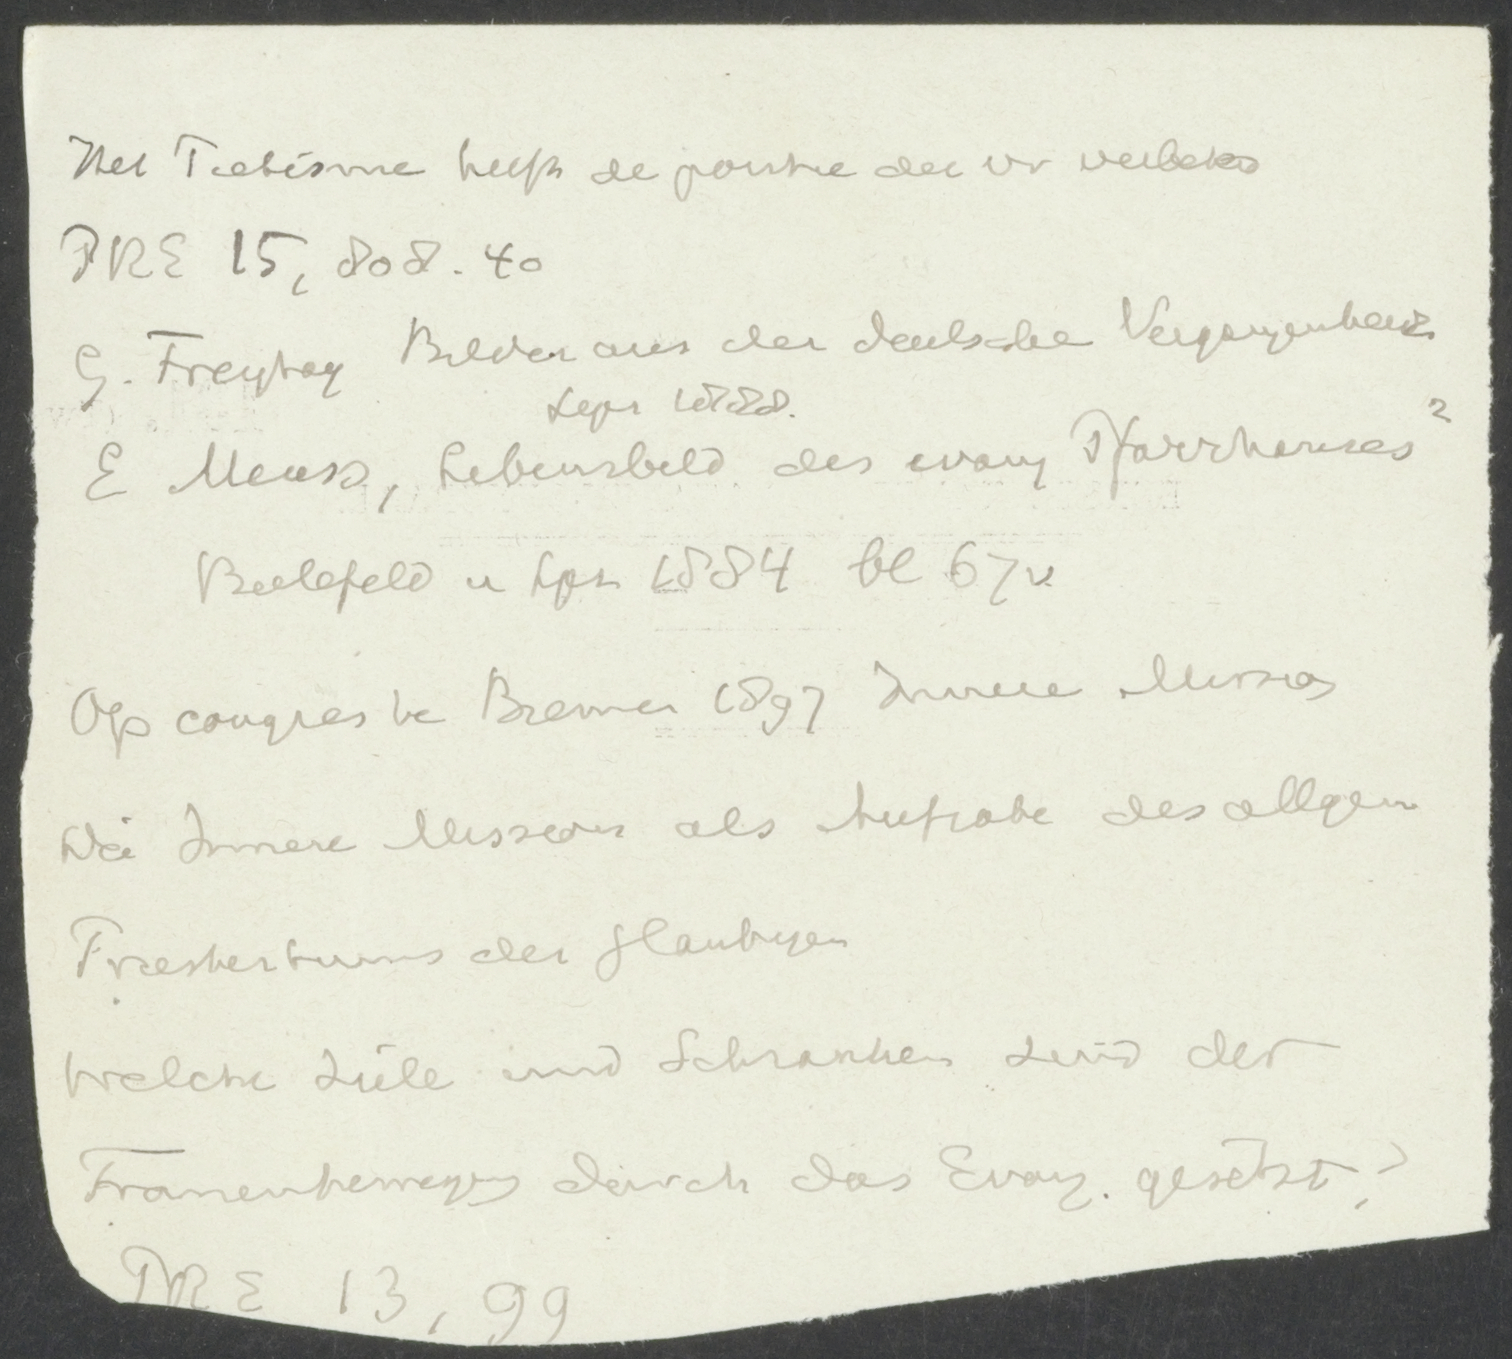 Het Pietisme heeft de positie der vr verbeterd
PRE 15, 808. 40
G. Freytag Bilder aus der deutschen Vergangenheit
Leipz 1888.
E Meuss, Lebensbild des evang Pfarrhauses²
Bielefeld u Lpz 1884 bl 67v.
Op congres te Bremen 1897 Innere Mission
Die Innere Mission als Aufgabe des allgem
Priestertums der Glaubigen
Welche Ziele und Schranken sind der
Frauenbewegung durch das Evang. gesetzt?
PRE 13, 99